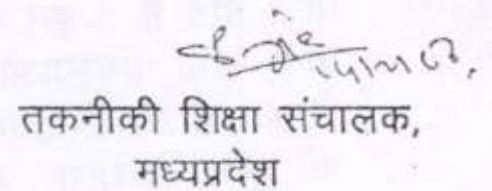 तकनीकी शिक्षा संचालक,
मध्यप्रदेश